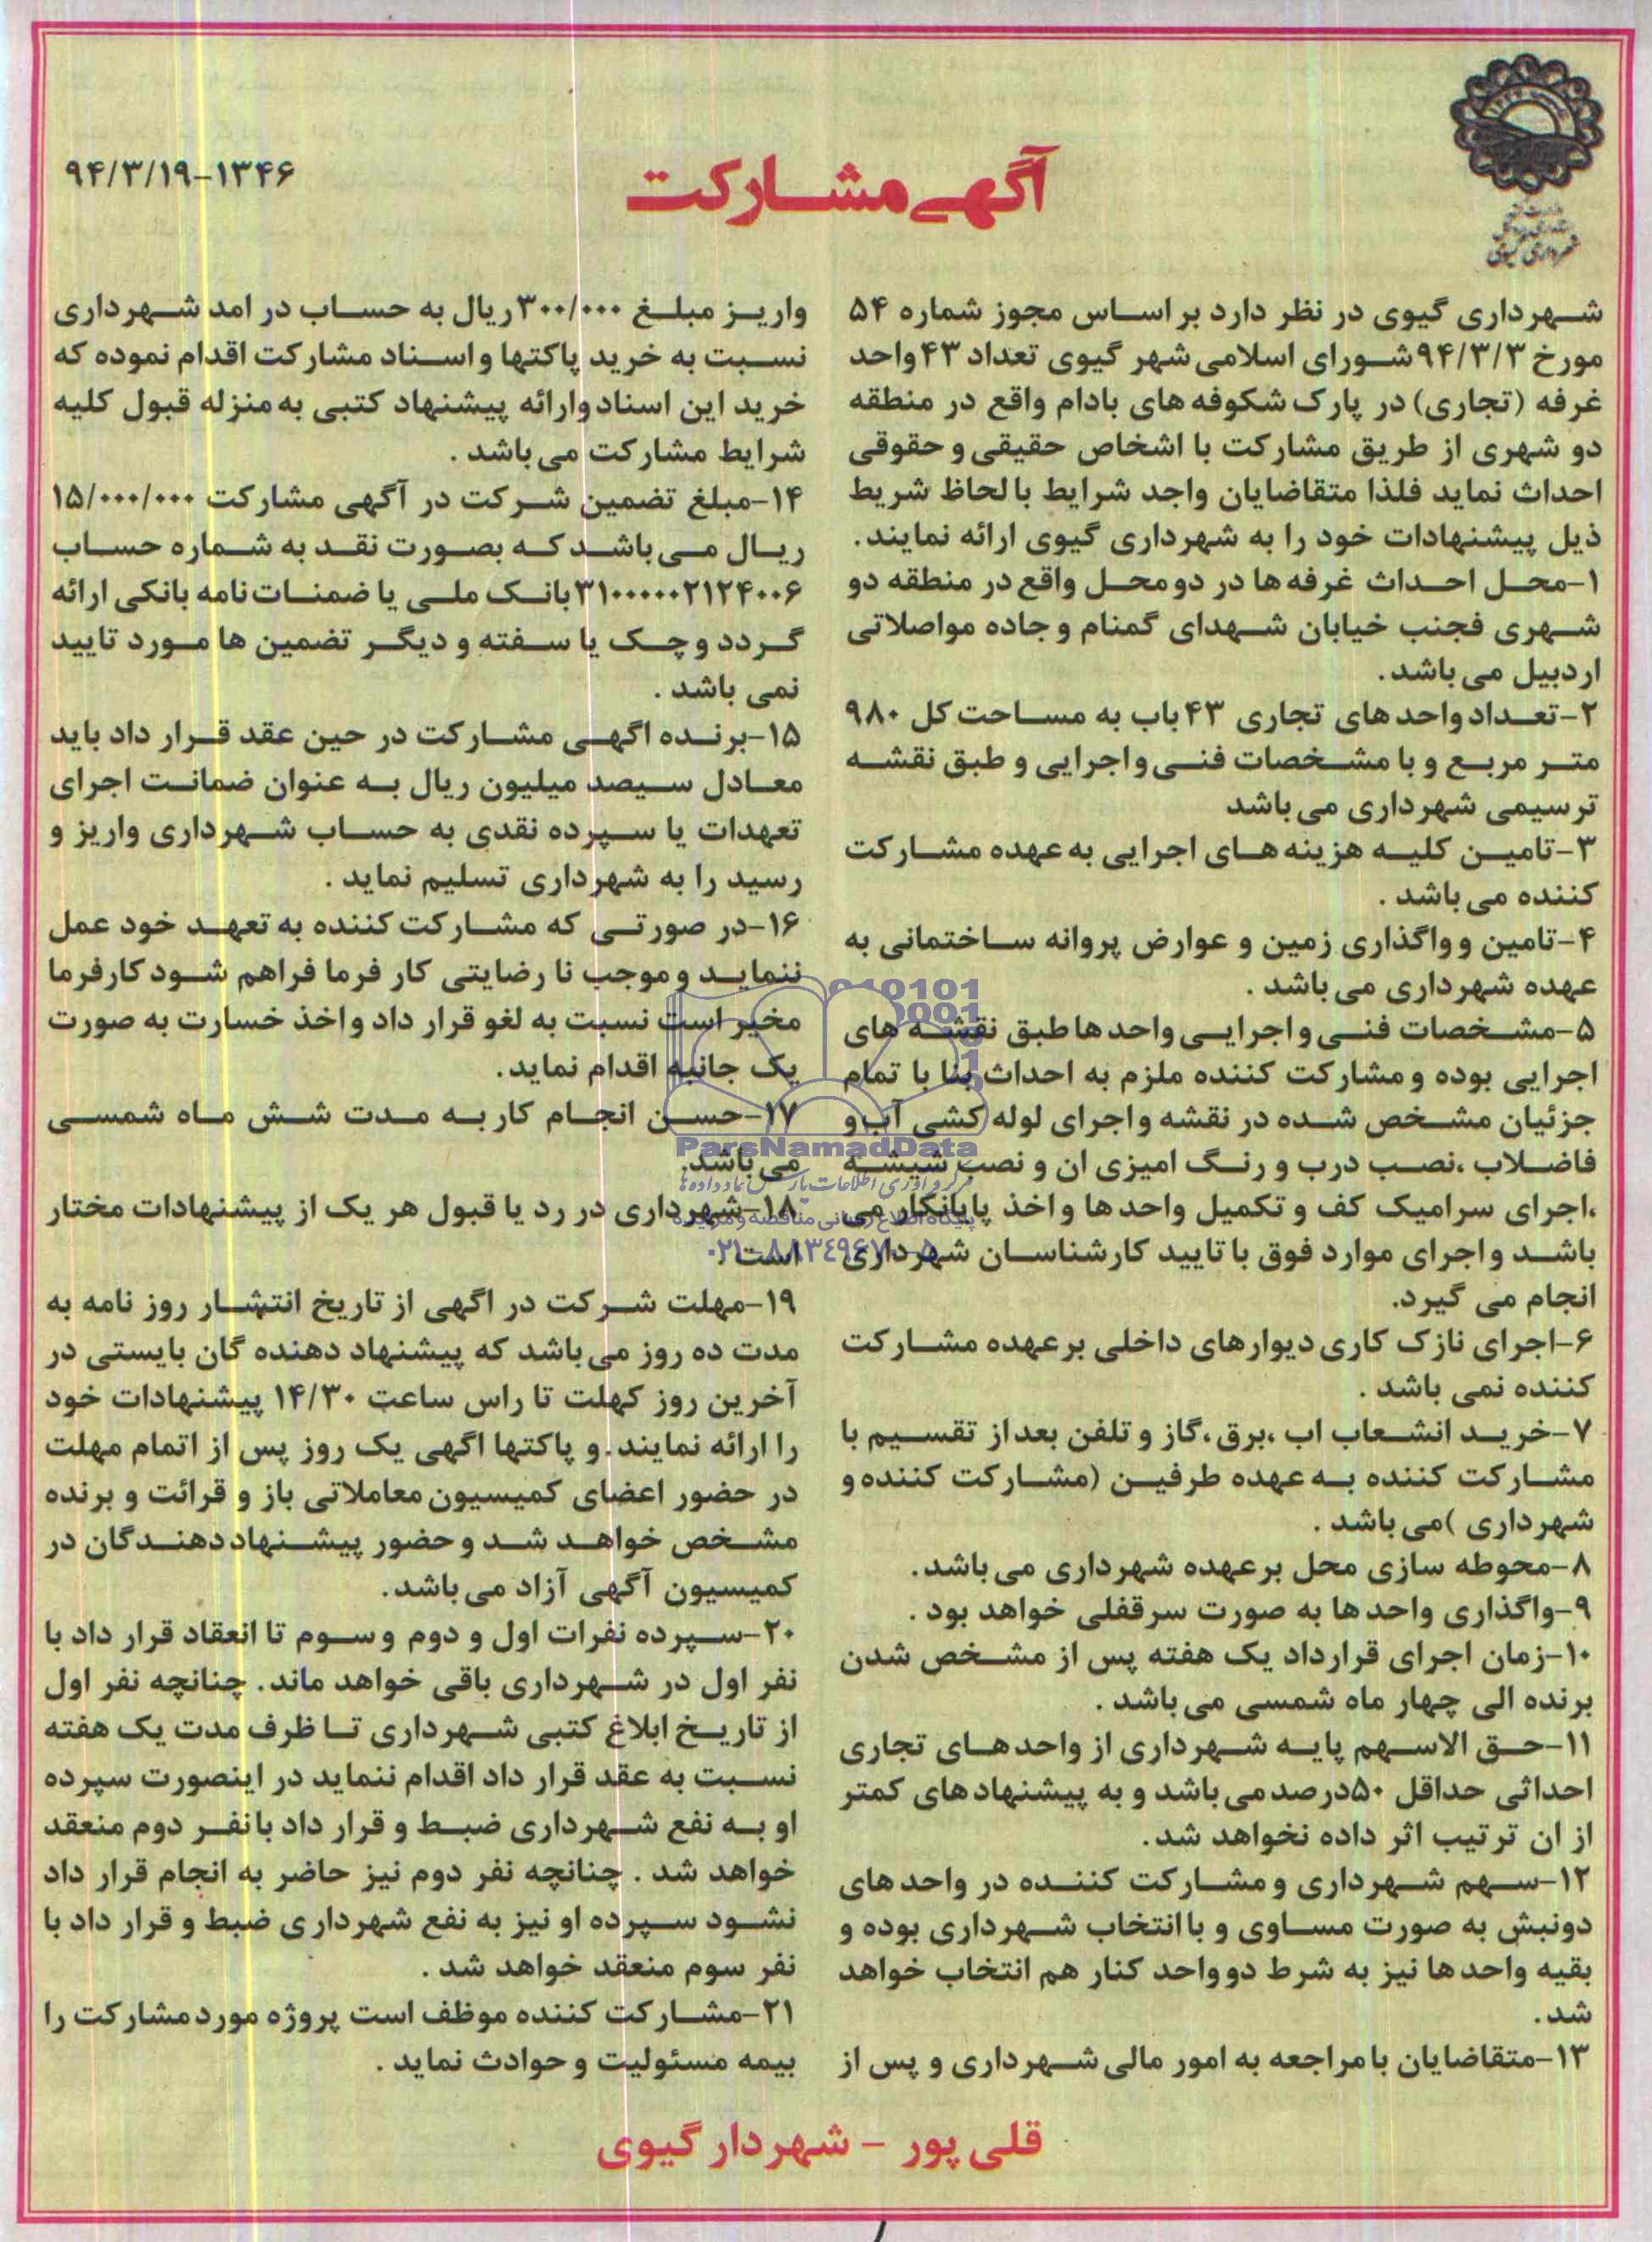 ۹۴/۳/۱۹-۱۳۴۶
آگهی مشارکت
شهرداری گیوی
شهرداری گیوی در نظر دارد بر اساس مجوز شماره ۵۴
مورخ ۹۴/۳/۳ شورای اسلامی شهر گیوی تعداد ۴۳ واحد
غرفه (تجاری) در پارک شکوفه های بادام واقع در منطقه
دو شهری از طریق مشارکت با اشخاص حقیقی و حقوقی
احداث نماید فلذا متقاضایان واجد شرایط با لحاظ شریط
ذیل پیشنهادات خود را به شهرداری گیوی ارائه نمایند.
۱-محل احداث غرفه ها در دو محل واقع در منطقه دو
شهری فجنب خیابان شهدای گمنام و جاده مواصلاتی
اردبیل می باشد.
۲-تعداد واحد های تجاری ۴۳ باب به مساحت کل ۹۸۰
متر مربع و با مشخصات فنی و اجرایی و طبق نقشه
ترسیمی شهرداری می باشد
۳-تامین کلیه هزینه های اجرایی به عهده مشارکت
کننده می باشد .
۴-تامین و واگذاری زمین و عوارض پروانه ساختمانی به
عهده شهرداری می باشد .
۵-مشخصات فنی و اجرایی واحد ها طبق نقشه های
اجرایی بوده و مشارکت کننده ملزم به احداث بنا با تمام
جزئیان مشخص شده در نقشه و اجرای لوله کشی آب و
فاضلاب ،نصب درب و رنگ امیزی ان و نصب شیشه
،اجرای سرامیک کف و تکمیل واحد ها و اخذ پایانکار می
باشد و اجرای موارد فوق با تایید کارشناسان شهرداری
انجام می گیرد.
۶-اجرای نازک کاری دیوارهای داخلی بر عهده مشارکت
کننده نمی باشد .
۷-خرید انشعاب اب ،برق،گاز و تلفن بعد از تقسیم با
مشارکت کننده به عهده طرفین (مشارکت کننده و
شهرداری )می باشد .
۸-محوطه سازی محل بر عهده شهرداری می باشد.
۹-واگذاری واحد ها به صورت سرقفلی خواهد بود .
۱۰-زمان اجرای قرارداد یک هفته پس از مشخص شدن
برنده الی چهار ماه شمسی می باشد .
۱۱-حق الاسهم پایه شهرداری از واحد های تجاری
احداثی حداقل ۵۰درصد می باشد و به پیشنهاد های کمتر
از ان ترتیب اثر داده نخواهد شد.
۱۲-سهم شهرداری و مشارکت کننده در واحد های
دونبش به صورت مساوی و با انتخاب شهرداری بوده و
بقیه واحد ها نیز به شرط دو واحد کنار هم انتخاب خواهد
شد.
۱۳-متقاضایان با مراجعه به امور مالی شهرداری و پس از
واریز مبلغ ۳۰۰/۰۰۰ریال به حساب در امد شهرداری
نسبت به خرید پاکتها و اسناد مشارکت اقدام نموده که
خرید این اسناد وارائه پیشنهاد کتبی به منزله قبول کلیه
شرایط مشارکت می باشد .
۱۴-مبلغ تضمین شرکت در آگهی مشارکت ۱۵/۰۰۰/۰۰۰
ریال می باشد که بصورت نقد به شماره حساب
۳۱۰۰۰۰۰۲۱۲۴۰۰۶بانک ملی یا ضمنات نامه بانکی ارائه
گردد و چک یا سفته و دیگر تضمین ها مورد تایید
نمی باشد .
۱۵-برنده اگهی مشارکت در حین عقد قرار داد باید
معادل سیصد میلیون ریال به عنوان ضمانت اجرای
تعهدات یا سپرده نقدی به حساب شهرداری واریز و
رسید را به شهرداری تسلیم نماید .
۱۶-در صورتی که مشارکت کننده به تعهد خود عمل
ننماید و موجب نا رضایتی کار فرما فراهم شود کارفرما
مخیر است نسبت به لغو قرار داد و اخذ خسارت به صورت
یک جانبه اقدام نماید.
۱۷-حسن انجام کار به مدت شش ماه شمسی
می باشد.
۱۸-شهرداری در رد یا قبول هر یک از پیشنهادات مختار
است .
۱۹-مهلت شرکت در اگهی از تاریخ انتشار روز نامه به
مدت ده روز می باشد که پیشنهاد دهنده گان بایستی در
آخرین روز کهلت تا راس ساعت ۱۴/۳۰ پیشنهادات خود
را ارائه نمایند.و پاکتها اگهی یک روز پس از اتمام مهلت
در حضور اعضای کمیسیون معاملاتی باز و قرائت و برنده
مشخص خواهد شد و حضور پیشنهاد دهندگان در
کمیسیون آگهی آزاد می باشد.
۲۰-سپرده نفرات اول و دوم و سوم تا انعقاد قرار داد با
نفر اول در شهرداری باقی خواهد ماند. چنانچه نفر اول
از تاریخ ابلاغ کتبی شهرداری تا ظرف مدت یک هفته
نسبت به عقد قرار داد اقدام ننماید در اینصورت سپرده
او به نفع شهرداری ضبط و قرار داد با نفر دوم منعقد
خواهد شد . چنانچه نفر دوم نیز حاضر به انجام قرار داد
نشود سپرده او نیز به نفع شهرداری ضبط و قرار داد با
نفر سوم منعقد خواهد شد .
۲۱-مشارکت کننده موظف است پروژه مورد مشارکت را
بیمه مسئولیت و حوادث نماید .
قلی پور - شهردار گیوی
ParsNamadData
مرکز فرآوری اطلاعات پارس نماد داده ها
پایگاه اطلاع رسانی مناقصه و مزایده
۰۲۱-۸۸۳۴۹۶۷۰-۵